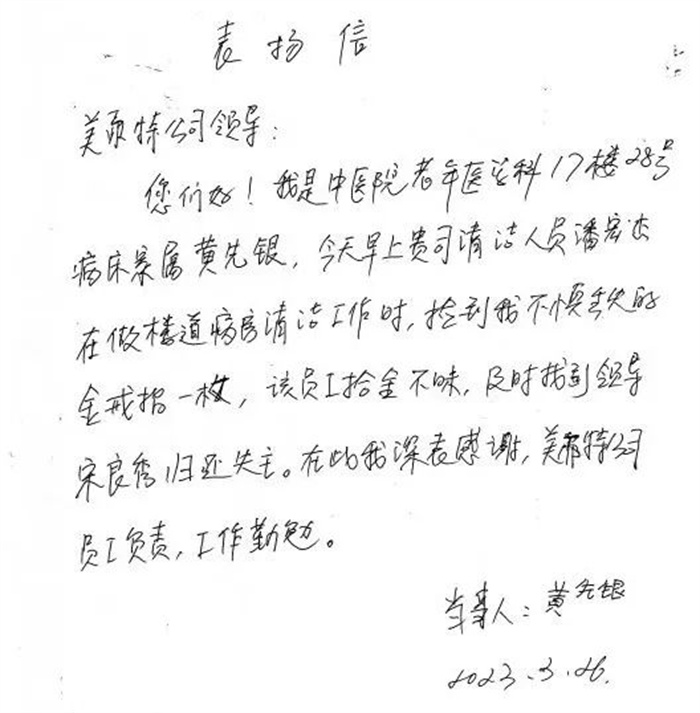 表扬信
美而特公司领导：
您们好！我是中医院老年医学科17楼28号
病床家属黄先银，今天早上贵司清洁人员潘宏杰
在做楼道病房清洁工作时，捡到我不慎丢失的
金戒指一枚，该员工拾金不昧，及时找到领导
宋良秀归还失主。在此我深表感谢，美而特公司
员工负责，工作勤勉。
当事人：黄先银
2023.3.26.